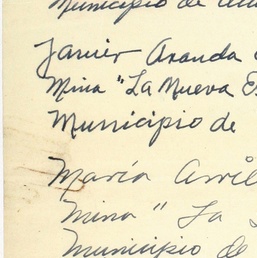 Municipio de
Javier Aranda
Mina "La Nueva Es
Municipio de
María
Mina "La
Municipio de